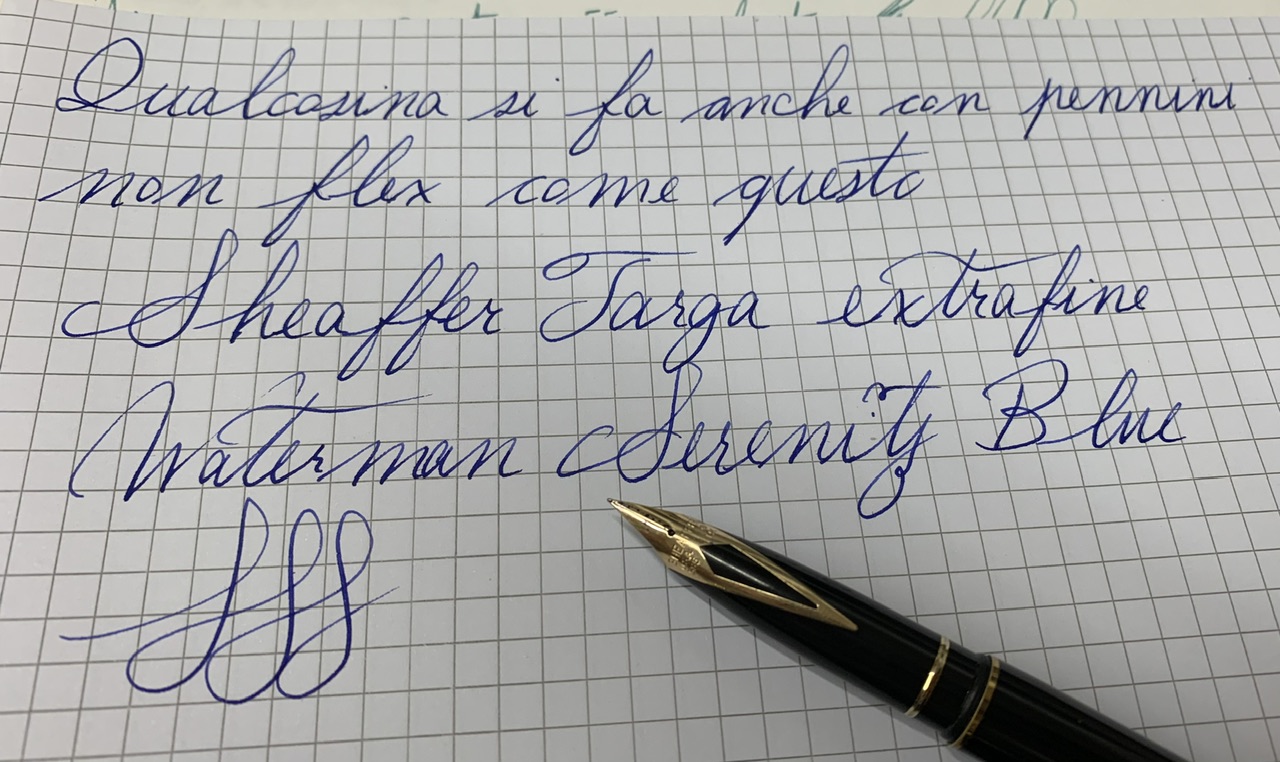 Qualcosina si fa anche con pennini
non flex come questo
Sheaffer Targa extrafine
Waterman Serenity Blue
fff